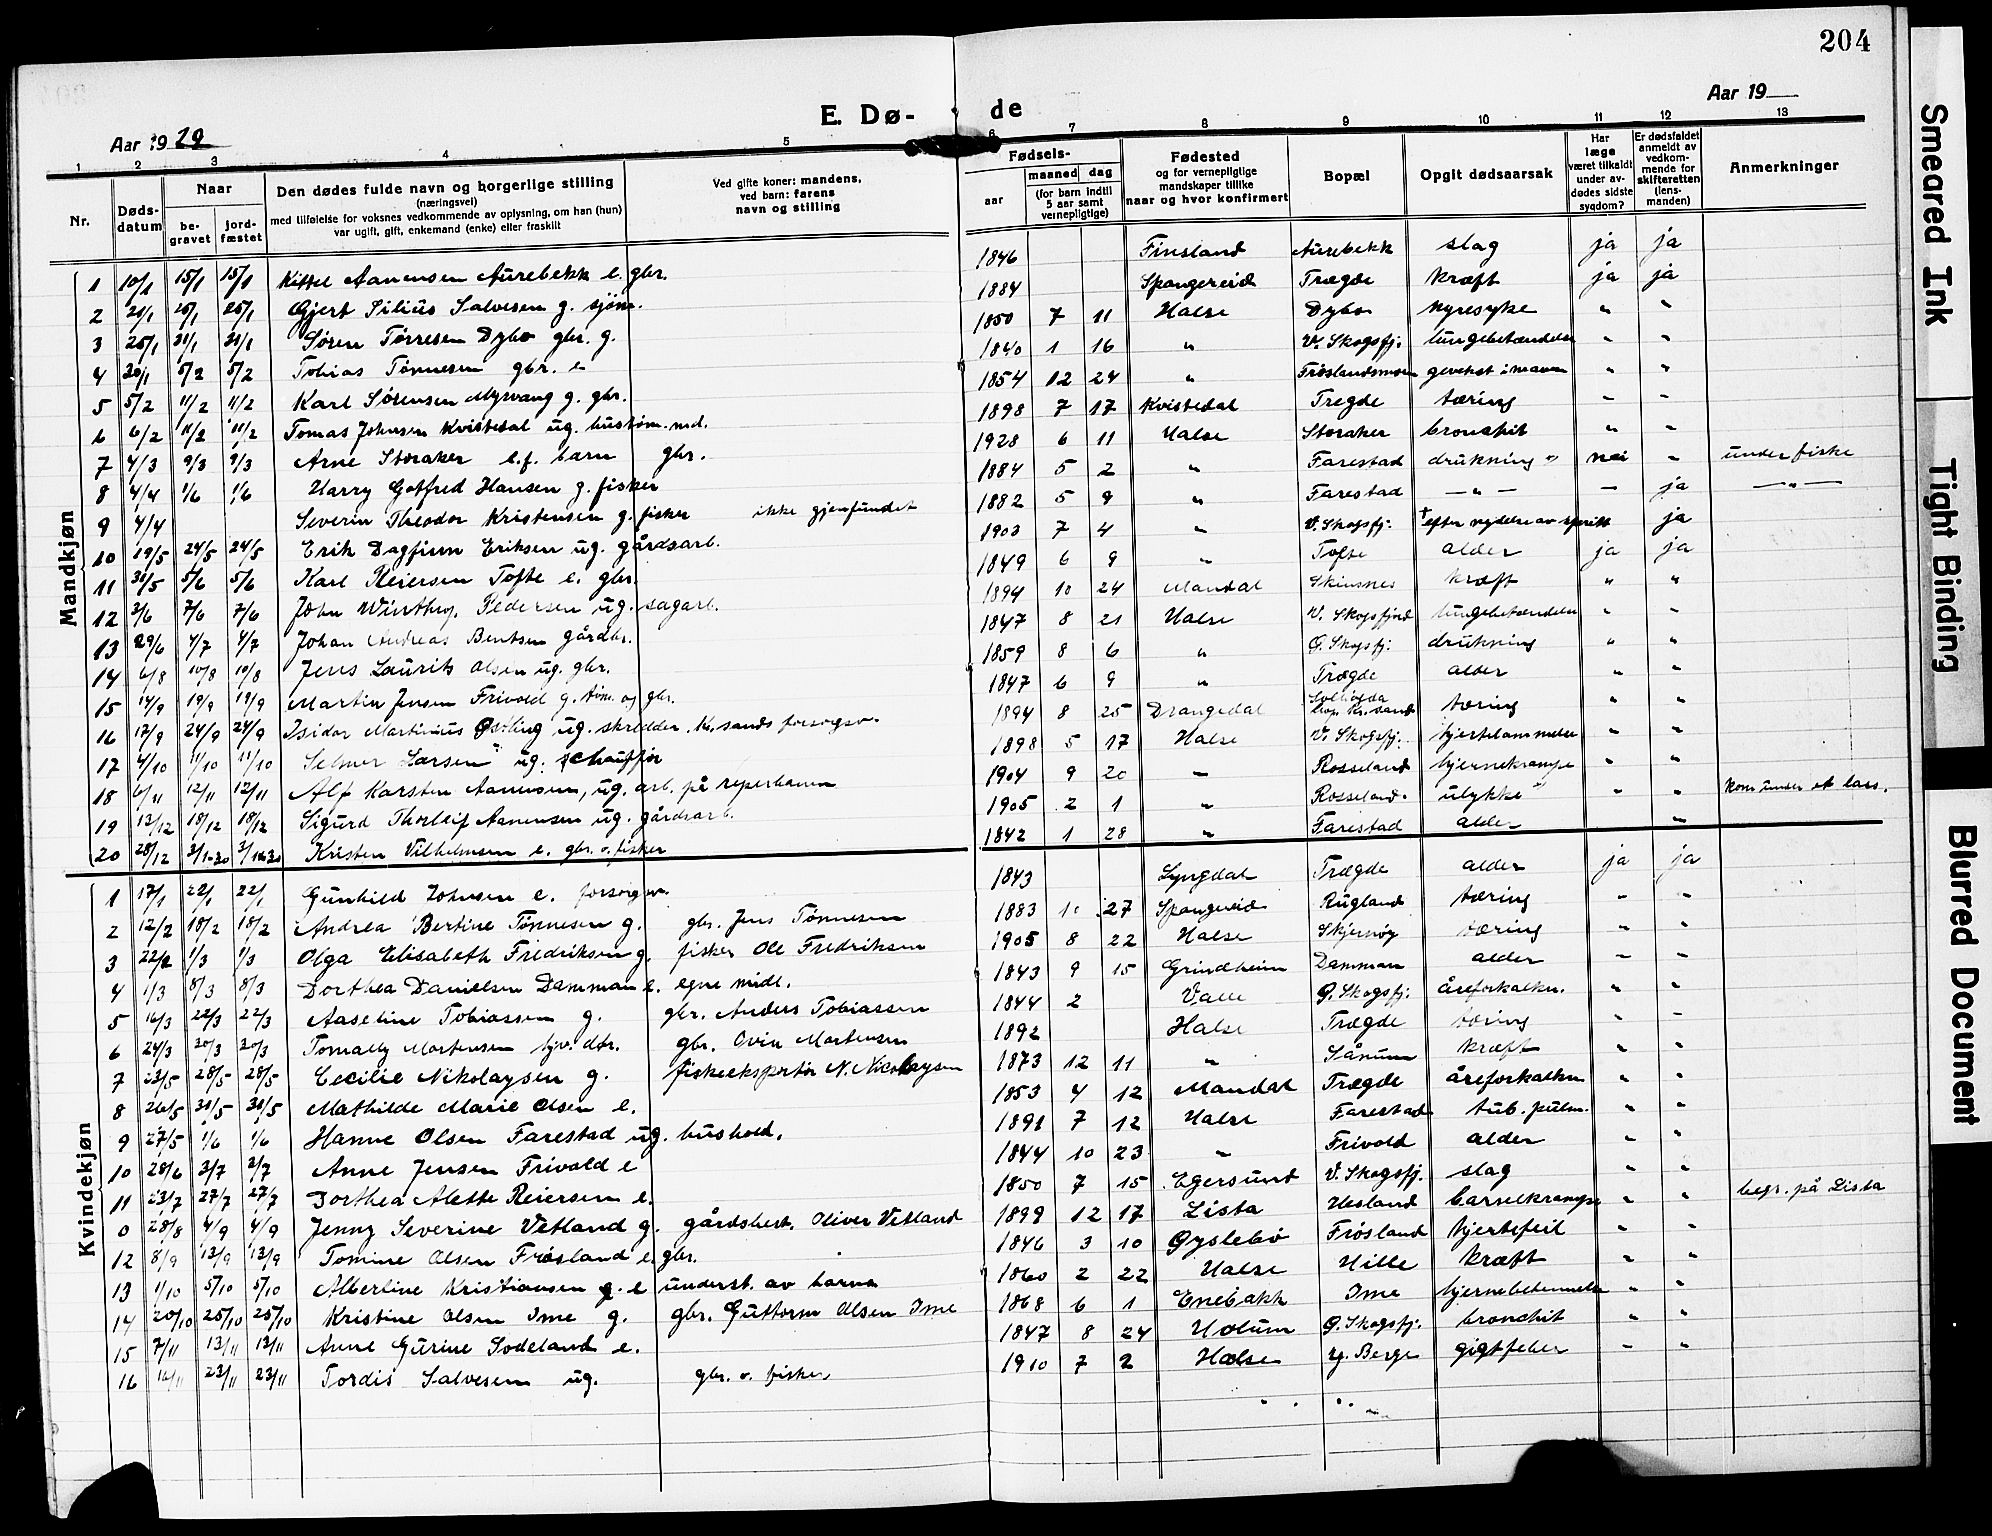 204
E. Dø- de
Aar 1929
Aar 19
1 2 3 4 5 6 7 8 9 10 11 12 13
Nr.
Døds-datum
Naar
be-gravet
jord-fæstet
Den dødes fulde navn og borgerlige stilling
(næringsvei)
med tilføielse for voksnes vedkommende av oplysning, om han (hun)
var ugift, gift, enkemand (enke) eller fraskilt
Ved gifte koner: mandens,
ved barn: farens
navn og stilling
Fødsels-
aar
maaned dag
(for barn indtil 5 aar samt vernepligtige)
Fødested
og for vernepligtige mandskaper tillike naar og hvor konfirmert
Bopæl
Opgit dødsaarsak
Har læge været tilkaldt under av-dødes sidste sygdom?
Er dødsfaldet anmeldt av vedkom-mende for skifteretten (lens-manden)
Anmerkninger
Mandkjøn
1 10/1 15/1 15/1 Kittel Aanensen Aurebekk e. gbr. 1846 Finsland Aurebekk slag ja ja
2 20/1 25/1 25/1 Gjert Silius Salvesen g. sjøm. 1884 Spangereid Trægde kræft ja ja
3 25/1 31/1 31/1 Søren Tørresen Dybo gbr. g. 1850 7 11 Halse Dybo nyresyke " "
4 30/1 5/2 5/2 Tobias Tønnesen gbr. e 1840 1 16 " V. Skogsfj. lungebetændelse " "
5 5/2 11/2 11/2 Karl Sørensen Myrvang g. gbr. 1854 12 24 " Frøslandsmoen gevekst i maven " "
6 6/2 11/2 11/2 Tomas Johnsen Kvistedal ug. hustøm. md. 1898 7 17 Kvistedal Tregde tæring " "
7 4/3 9/3 9/3 Arne Storaker e.f. barn gbr. 1928 6 11 Halse Storaker bronchit " "
8 4/4 1/6 1/6 Harry Gotfred Hansen g. fisker 1884 5 2 " Farestad drukning " nei " under fiske
9 4/4 Severin Theodor Kristensen g. fisker ikke gjenfundet 1882 5 9 " Farestad — " — — ja — " —
10 19/5 24/5 24/5 Erik Dagfinn Eriksen ug. gårdsarb. 1903 7 4 " V. Skogsfj. † efter nydelse av spritt ja
11 31/5 5/6 5/6 Karl Reiersen Tofte e. gbr. 1849 6 9 " Tofte alder ja ja
12 2/6 7/6 7/6 John Winthrop Pedersen ug. sagarb. 1894 10 24 Mandal Skinsnes kræft " "
13 29/6 4/7 4/7 Johan Andreas Bentsen gårdbr. 1847 8 21 Halse V. Skogsfjord lungebetændelse " "
14 6/8 10/8 10/8 Jens Laurits Olsen ug. gbr. 1859 8 6 " Ø. Skogsfj. drukning " "
15 14/9 19/9 19/9 Martin Jensen Frivold g. tøm. og gbr. 1847 6 9 " Trægde alder " "
16 17/9 24/9 24/9 Isidor Martinius Østling ug. skredder. Kr.sands forsorgsv. 1894 8 25 Drangedal Kr. sand tæring " "
17 4/10 11/10 11/10 Selmer Larsen ug. schauffør 1898 5 17 Halse V. Skogsfj. hjertelammelse " "
18 6/11 12/11 12/11 Alf Karsten Aanensen, ug. arb. på reperbanen 1904 9 20 " Rosseland hjernekrampe " "
19 13/12 18/12 18/12 Sigurd Thorleif Aanensen ug. gårdsarb. 1905 2 1 " Rosseland. ulykke " " " Kom under et lass.
20 28/12 3/1-30 3/1-30 Kristen Vilhelmsen e. gbr. o. fisker 1842 1 28 " Farestad alder "
Kvindekjøn
1 17/1 22/1 22/1 Gunhild Johnsen e. forsorgsv. 1843 Lyngdal Trægde alder ja ja
2 12/2 18/2 18/2 Andrea Bertine Tønnesen g. gbr. Jens Tønnesen 1883 10 27 Spangereid Rugland tæring " "
3 22/2 1/3 1/3 Olga Elisabeth Fredriksen g. fisker Ole Fredriksen 1905 8 22 Halse Skjernøy tæring " "
4 1/3 8/3 8/3 Dorthea Danielsen Damman e. egne midl. 1843 9 15 Grindheim Damman alder " "
5 16/3 22/3 22/3 Aaseline Tobiassen g. gbr. Anders Tobiassen 1844 2 Valle Ø. Skogsfj. åreforkalkn. " "
6 24/3 30/3 30/3 Tomally Mortensen hjv. dtr. gbr. Ovin Mortensen 1892 Halse Trægde tæring " "
7 23/5 28/5 28/5 Cecilie Nikolaysen g. fiskeeksportør N. Nicolaysen 1873 12 11 " Sånum kræft " "
8 26/5 31/5 31/5 Mathilde Marie Olsen e. 1853 4 12 Mandal Trægde åreforkalkn " "
9 27/5 1/6 1/6 Hanne Olsen Farestad ug. hushold. 1891 7 12 Halse Farestad tub. pulm. " "
10 28/6 3/7 3/7 Anne Jensen Frivold e 1844 10 23 " Frivold alder " "
11 23/7 27/7 27/7 Dorthea Alette Reiersen e. 1850 7 15 Egersund V. Skogsfj. slag " "
0 28/8 4/9 4/9 Jenny Severine Vetland g. gårdsbest. Oliver Vetland 1899 12 17 Lista Hesland barselkrampe " " begr. på Lista
12 8/9 13/9 13/9 Tomine Olsen Frøsland e. gbr. 1846 3 10 Øyslebø Frøsland hjertefeil
13 1/10 5/10 5/10 Albertine Kristiansen g. e underst. av barna 1860 2 22 Halse Hille kræft " "
14 20/10 25/10 25/10 Kristine Olsen Ime g. gbr. Guttorm Olsen Ime 1868 6 1 Enebakk Ime hjernebetennelse " "
15 7/11 13/11 13/11 Anne Gurine Sodeland e. 1847 8 24 Holum Ø. Skogsfj. bronchit " "
16 16/11 23/11 23/11 Tordis Salvesen ug. gbr. o. fisker 1910 7 2 Halse y. Berge gigtfeber " "
Smeared Ink
Tight Binding
Blurred Document